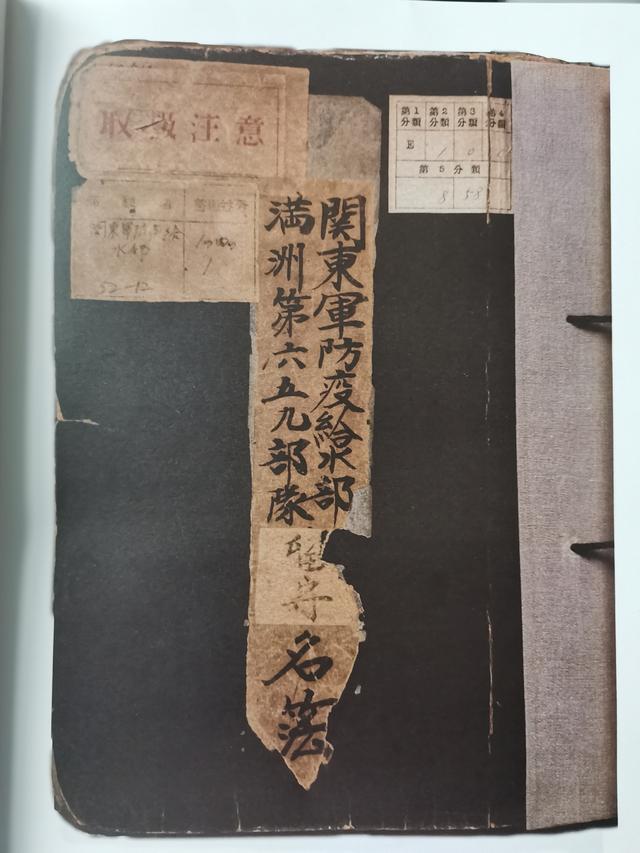 取扱注意
関東軍防疫給
水部
52-12
第1分類 第2分類 第3分類 第4分類
E 1 0
第5分類
8 58
関東軍防疫給水部
満洲第六五九部隊
留守
名簿